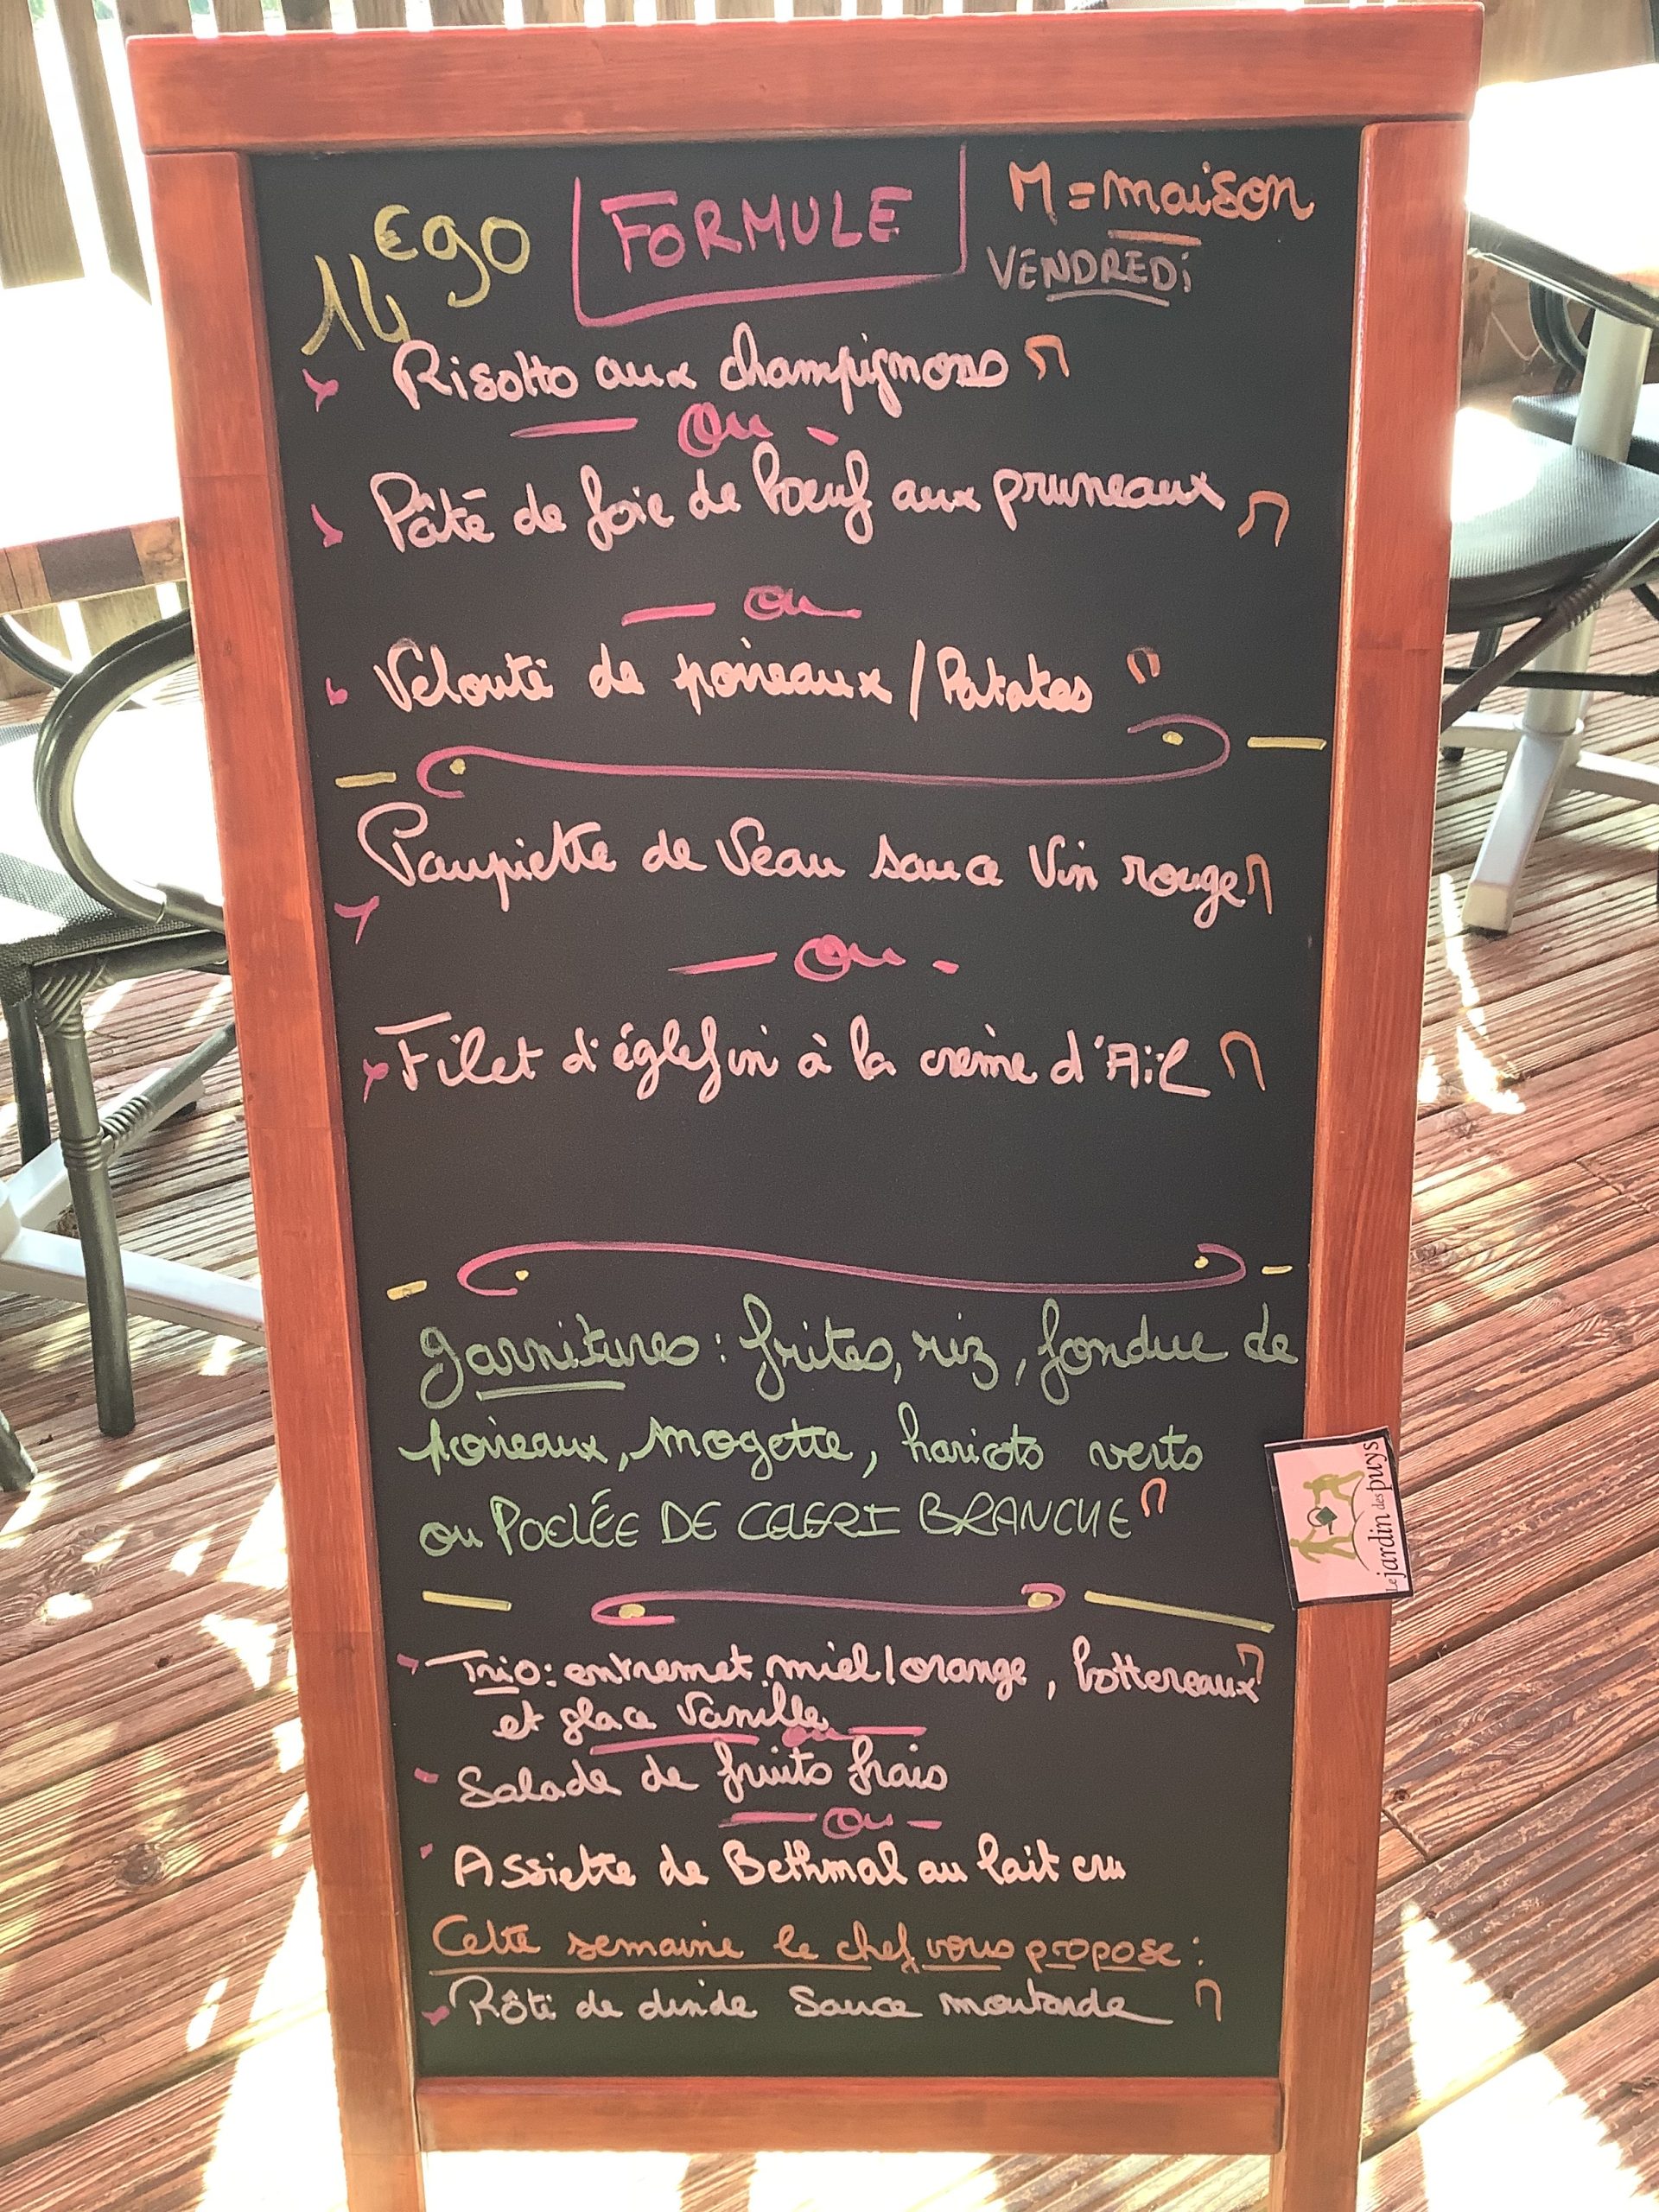 14€90 FORMULE M=maison
VENDREDi
Risotto aux champignons M
ou
Pâté de foie de bœuf aux pruneaux M
ou
Velouté de poireaux / Patates M
Paupiette de Veau sauce Vin rouge M
ou
Filet d'églefin à la crème d'Ail M
garnitures : frites, riz, fondue de
poireaux, mogette, haricots verts
ou POELÉE DE CELERI BRANCHE M
Trio : entremet miel/orange, bottereaux M
et glace Vanille
ou
Salade de fruits frais
ou
Assiette de Bethmal au lait cru
Cette semaine le chef vous propose :
Rôti de dinde Sauce moutarde M
Le jardin des puys